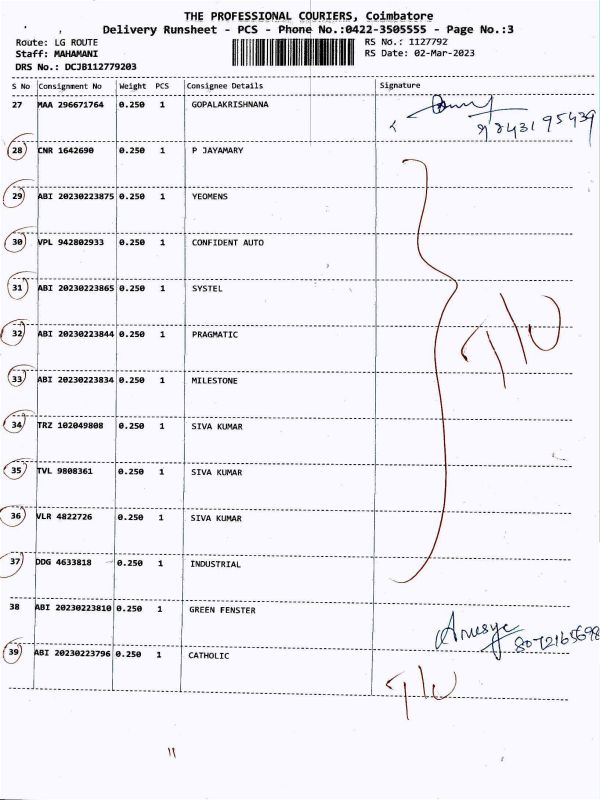 THE PROFESSIONAL COURIERS, Coimbatore
Delivery Runsheet - PCS - Phone No.:0422-3505555 - Page No.:3
Route: LG ROUTE RS No.: 1127792
Staff: MAHAMANI RS Date: 02-Mar-2023
DRS No.: DCJB112779203
S No Consignment No Weight PCS Consignee Details Signature
27 MAA 296671764 0.250 1 GOPALAKRISHNANA
28 CNR 1642690 0.250 1 P JAYAMARY
29 ABI 20230223875 0.250 1 YEOMENS
30 VPL 942802933 0.250 1 CONFIDENT AUTO
31 ABI 20230223865 0.250 1 SYSTEL
32 ABI 20230223844 0.250 1 PRAGMATIC
33 ABI 20230223834 0.250 1 MILESTONE
34 TRZ 102049808 0.250 1 SIVA KUMAR
35 TVL 9808361 0.250 1 SIVA KUMAR
36 VLR 4822726 0.250 1 SIVA KUMAR
37 DDG 4633818 0.250 1 INDUSTRIAL
38 ABI 20230223810 0.250 1 GREEN FENSTER
39 ABI 20230223796 0.250 1 CATHOLIC